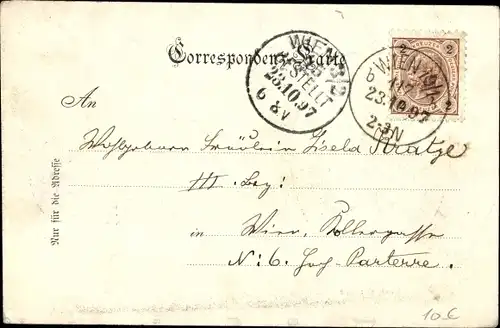 Correspondenz-Karte
WIEN 3/3
BESTELLT
23.10.97
6 8½V
b WIEN 19/1 b
23.10.97
2-3N
2
2
An
Wohlgeboren Fräulein Gisela Kratze
III. Bez:
in Wien, Kollergasse
N: 6. Hoch-Parterre.
Nur für die Adresse
10€